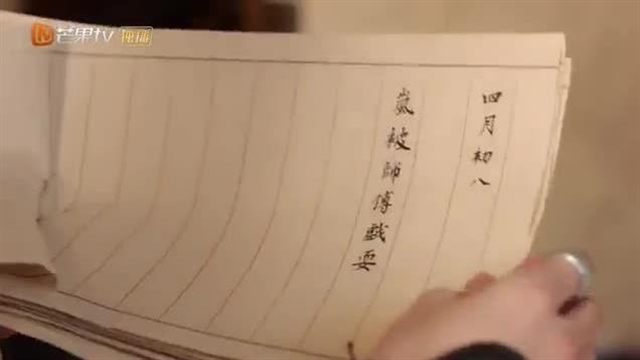 芒果TV 独播
四月初八
嵐被師傅戲耍